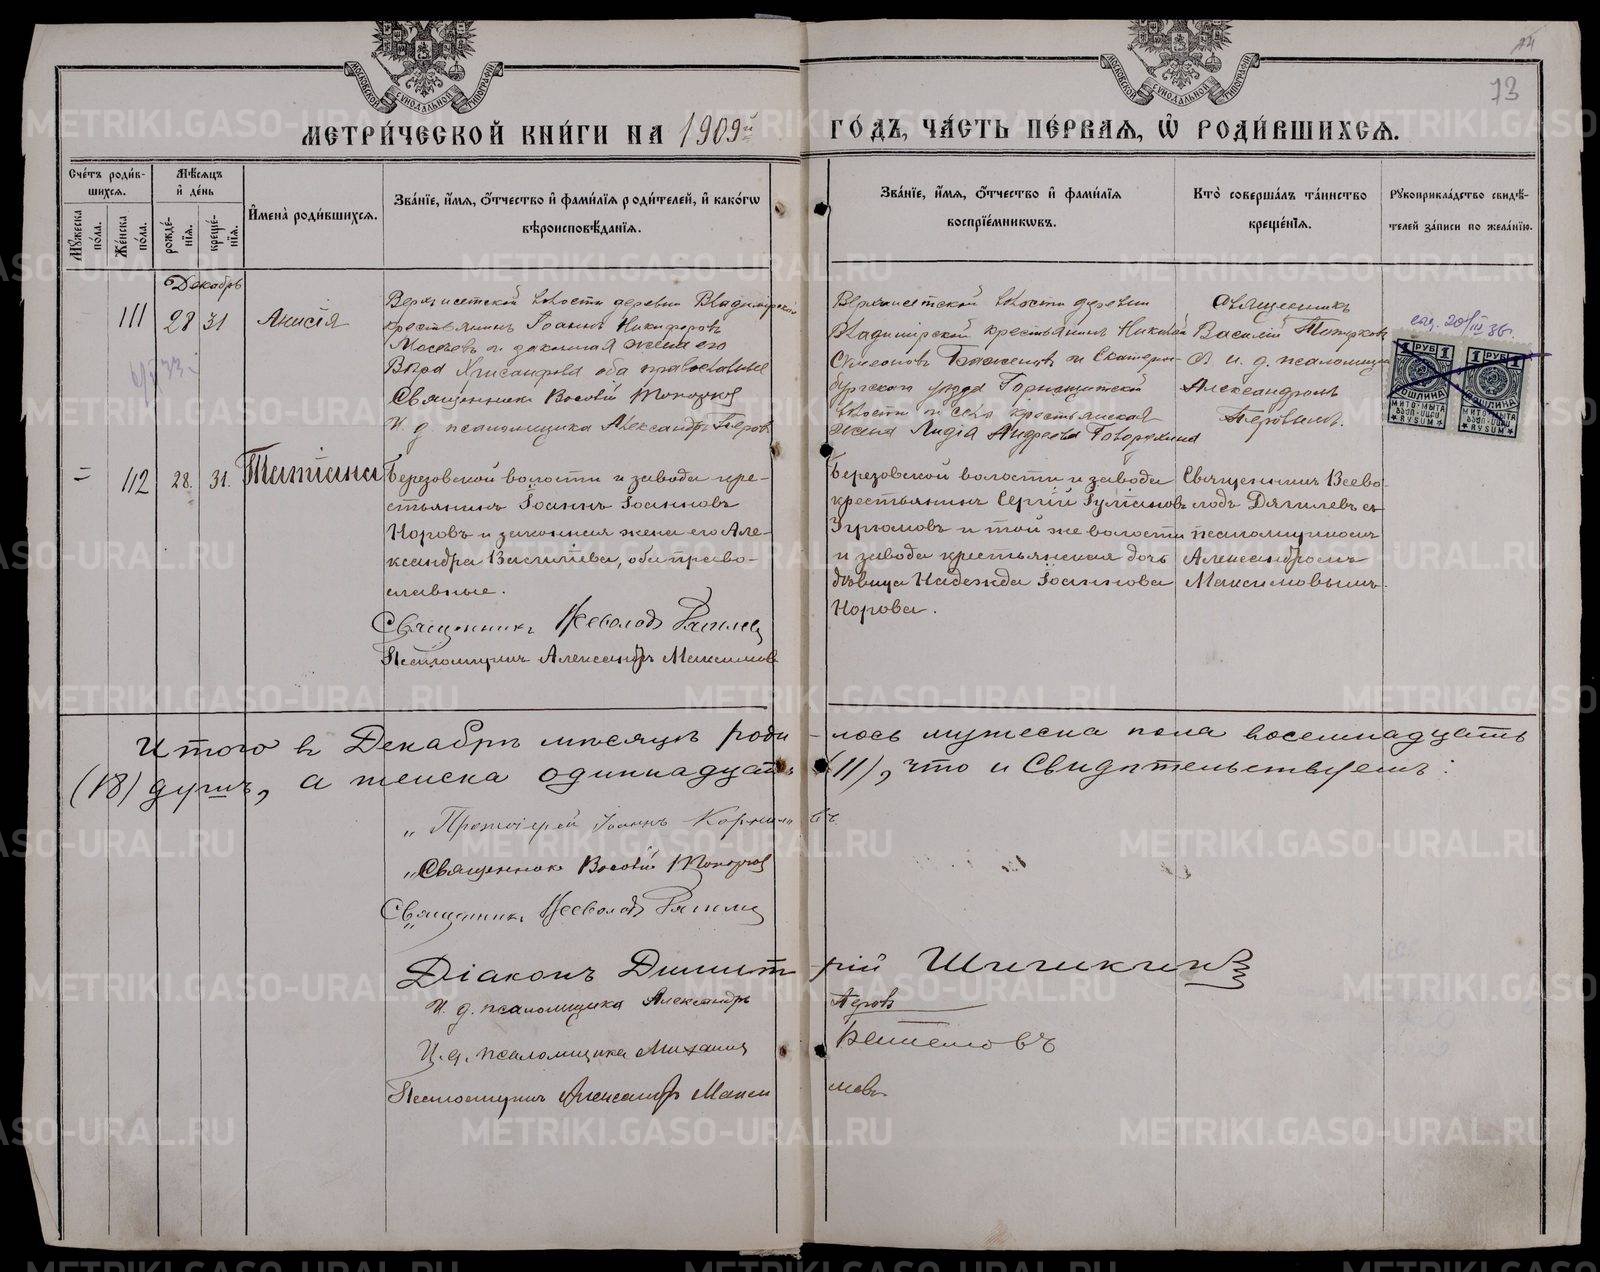 МОСКОВСКОЙ СѴНОДАЛЬНОЙ ТИПОГРАФІИ
МОСКОВСКОЙ СѴНОДАЛЬНОЙ ТИПОГРАФІИ
73
МЕТРИ́ЧЕСКОЙ КНИ́ГИ НА 1909й ГО́ДЪ, ЧА́СТЬ ПЕ́РВАЯ, Ѡ РОДИ́ВШИХСЯ.
Сче́тъ роди́в-
шихся.
Мужеска по́ла.
Же́нска по́ла.
Мѣ́сяцъ
и́ де́нь
рожде́-
нїя.
креще́-
нїя.
И́мена̀ роди́вшихся.
Зва́нїе, и́мя, о́тчество и́ фами́лїя роди́телей, и́ како́гѡ
вѣроисповѣ́данїя.
Зва́нїе, и́мя, о́тчество и́ фами́лїя
воспрїе́мникѡвъ.
Кто̀ соверша́лъ та́инство
креще́нїя.
Рукоприкла́дство свидѣ́-
телей за́писи по жела́нїю.
Декабрь
111
28 31
Анисія
Верхисетской волости деревни Владимірской
крестьянинъ Іоаннъ Никифоровъ
и законная жена его
Вѣра Хрисанфова оба православные
Священникъ Василій Топорковъ
И. д. псаломщика Александръ Перов
Верхисетской волости деревни
Владимірской крестьянинъ Николай
Симеоновъ Баженовъ и Екатерин-
бургскаго уѣзда Горнощитской
волости и села крестьянская
жена Лидія Андреева Говорухина
Священникъ
Василій Топорковъ
съ и. д. псаломщика
Александромъ
Перовымъ.
1 РУБ 1
ПОШЛИНА
МИТО-МЫТА
RYSUM
1 РУБ 1
ПОШЛИНА
МИТО-МЫТА
RYSUM
112
28. 31.
Татіана
Березовской волости и завода кре-
стьянинъ Іоаннъ Іоанновъ
Норовъ и законная жена его Але-
ксандра Васильева, оба право-
славные.
Священникъ Всеволодъ Дягилевъ
Псаломщикъ Александръ Максимовъ
Березовской волости и завода
крестьянинъ Сергій
и той же волости
и завода крестьянская дочь
дѣвица Надежда Іоаннова
Норова.
Священникъ Всево-
лодъ Дягилевъ съ
псаломщикомъ
Александромъ
Максимовымъ.
Итого въ Декабрѣ мѣсяцѣ роди-лось мужеска пола восемнадцать
(18) душъ, а женска одиннадцать (11), что и свидѣтельствуемъ:
Протоіерей Іоаннъ Корниловъ
Священникъ Василій Топорков
Священникъ Всеволодъ Дягилев
Діаконъ Димитрій Шишкинъ
И. д. псаломщика Александръ Перовъ
И. д. псаломщика Михаилъ
Псаломщикъ Александръ Максимовъ
METRIKI.GASO-URAL.RU